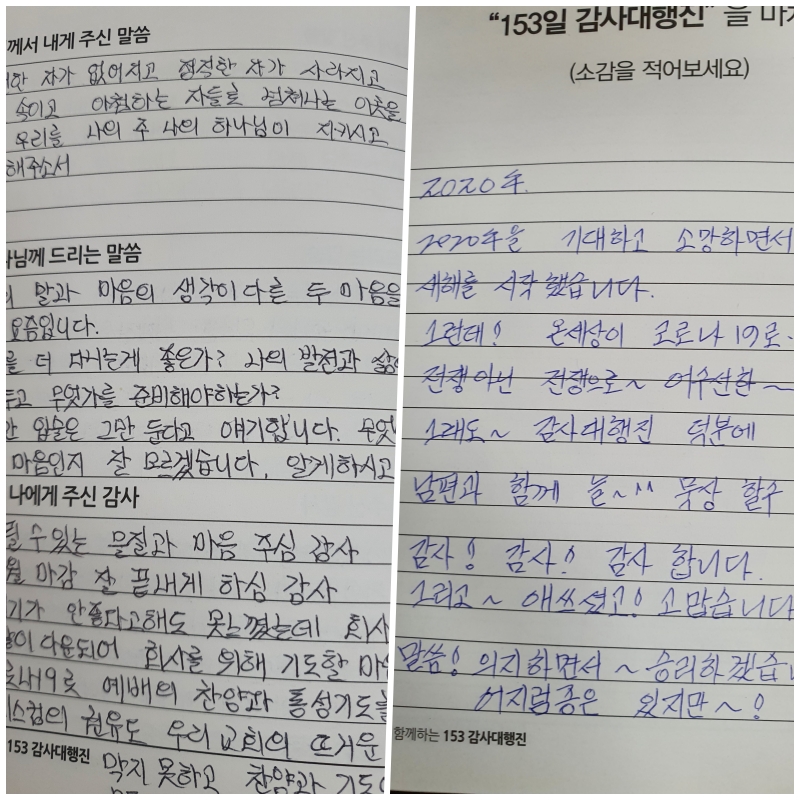 께서 내게 주신 말씀
한 자가 없어지고 정직한 자가 사라지고
속이고 아첨하는 자들로 넘쳐나는 이곳을
우리를 나의 주 나의 하나님이 지키시고
해주소서
나님께 드리는 말씀
말과 마음의 생각이 다른 두 마음을
요즘입니다.
를 더 다니는게 좋은가? 나의 발전과 삶
두고 무엇가를 준비해야하는가?
입술은 그만 둔다고 얘기합니다. 무엇
마음인지 잘 모르겠습니다. 알게하시고
나에게 주신 감사
필 수 있는 물질과 마음 주심 감사
월 마감 잘 끝내게 하심 감사
기가 안좋다고해도 못느꼈는데 회사
많이 다운되어 회사를 위해 기도할 마
로내19로 예배의 찬양과 통성기도를
권유도 우리 교회의 뜨거운
153 감사대행진
막지 못하고 찬양과 기도
“153일 감사대행진” 을 마치
(소감을 적어보세요)
2020年.
2020年을 기대하고 소망하면서
새해를 시작했습니다.
그런데! 온세상이 코로나 19로
전쟁아닌 전쟁으로~ 어수선한~
그래도~ 감사대행진 덕분에
남편과 함께 늘~^^ 묵상 할수
감사! 감사! 감사 합니다.
그리고~ 애쓰셨고! 고맙습니다
말씀! 의지하면서~ 승리하겠습니
어지럼증은 있지만~!
함께하는 153 감사대행진